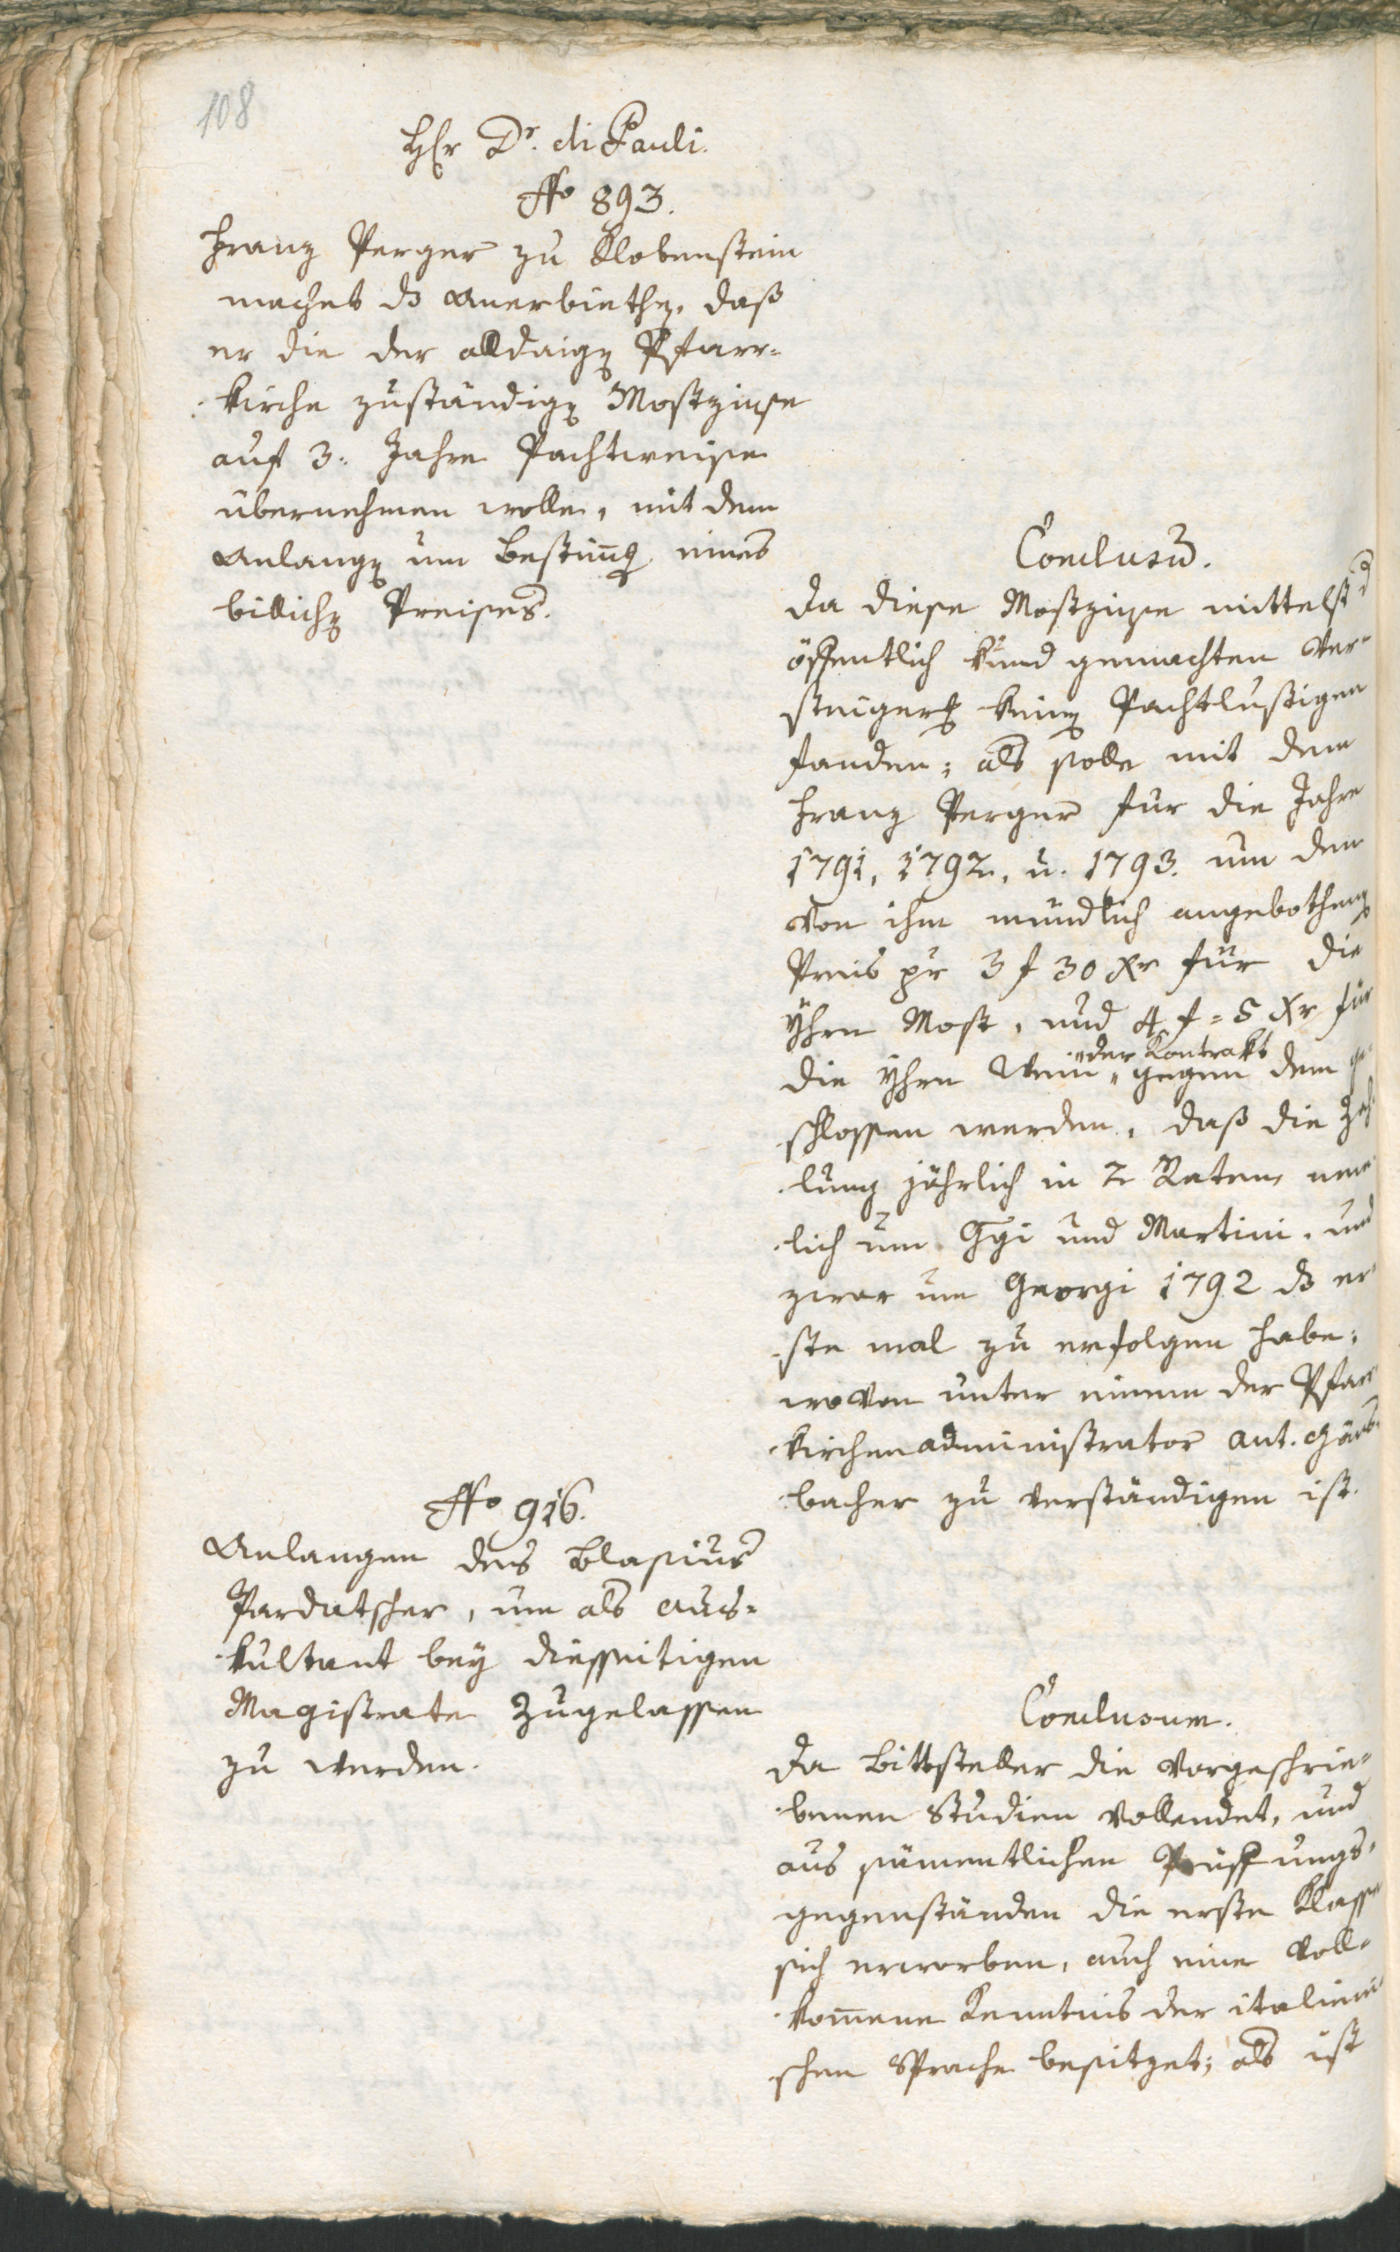 108
Hr Dr. di Pauli.
No 893.
Franz Perger zu Klobenstein
machet ds Anerbiethen, daß
er die der alldaigen Pfarr-
kirche zuständigen Mostzinse
auf 3: Jahre Pachtweise
übernehmen wolle, mit dem
Anlangen um Bestimmung eines
billichen Preises.
Conclusum.
Da diese Mostzinse mittelst
öffentlich kund gemachten Ver-
steigerung keinen Pachtlustigen
fanden; als solle mit dem
Franz Perger für die Jahre
1791, 1792, u. 1793. um den
von ihm mündlich angebothenen
Preis pr 3 f 30 Xr für die
Yhrn Most, und 4 f = 5 Xr für
der Kontrakt
die Yhrn Wein gegen dem ge
schlossen werden, daß die Zah
lung jährlich in 2 Raten, nem
lich um Ggi und Martini, und
zwar um Georgi 1792 ds er
ste mal zu erfolgen habe;
wovon unter einem der Pfarr
kirchenadministrator Ant. Gäns
bacher zu verständigen ist.
No 916.
Anlangen des Blasius
Pardatscher, um als Aus-
kultant bey diesseitigen
Magistrate zugelassen
zu werden.
Conclusum.
Da Bittsteller die vorgeschrie-
benen Studien vollendet, und
aus sämentlichen Prüfungs-
gegenständen die erste Klasse
sich erworben, auch eine voll-
kommene Kenntnis der italieni
schen Sprache besitzet; als ist